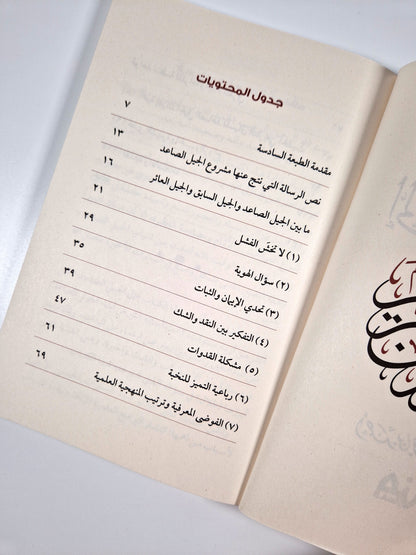 جدول المحتويات
مقدمة الطبعة السادسة ٧
نص الرسالة التي نتج عنها مشروع الجيل الصاعد ١٣
ما بين الجيل الصاعد والجيل السابق والجيل العاثر ١٦
(١) لا تخشَ الفشل ٢١
(٢) سؤال الهوية ٢٩
(٣) تحدي الإيمان والثبات ٣٥
(٤) التفكير بين النقد والشك ٣٩
(٥) مشكلة القدوات ٤٧
(٦) رباعية التميز للنخبة ٦١
(٧) الفوضى المعرفية وترتيب المنهجية العلمية ٦٩